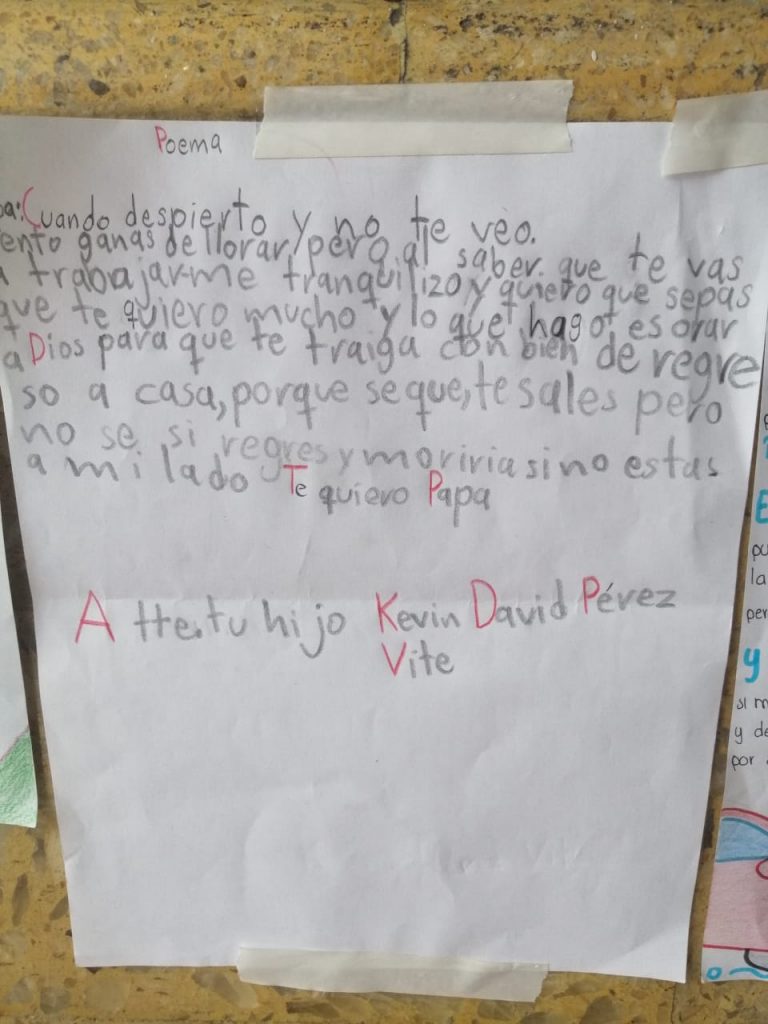 Poema
pa: Cuando despierto y no te veo.
ento ganas de llorar, pero al saber que te vas
a trabajar me tranquilizo y quiero que sepas
que te quiero mucho y lo que hago es orar
a Dios para que te traiga con bien de regre
so a casa, porque se que, te sales pero
no se si regres y moriria si no estas
a mi lado Te quiero Papa
Atte. tu hijo Kevin David Pérez
Vite
E
pu
la
per
y
si m
y de
por